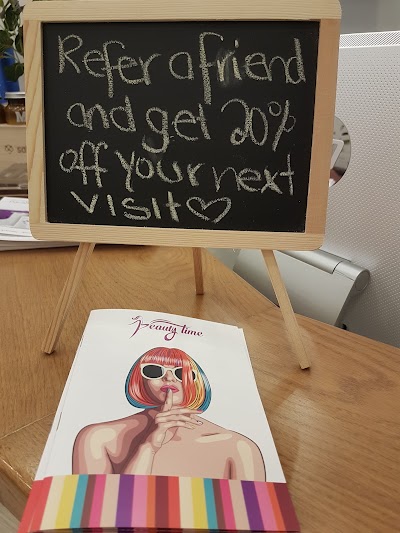 Refer a friend
and get 20%
off your next
visit♡
Beauty time